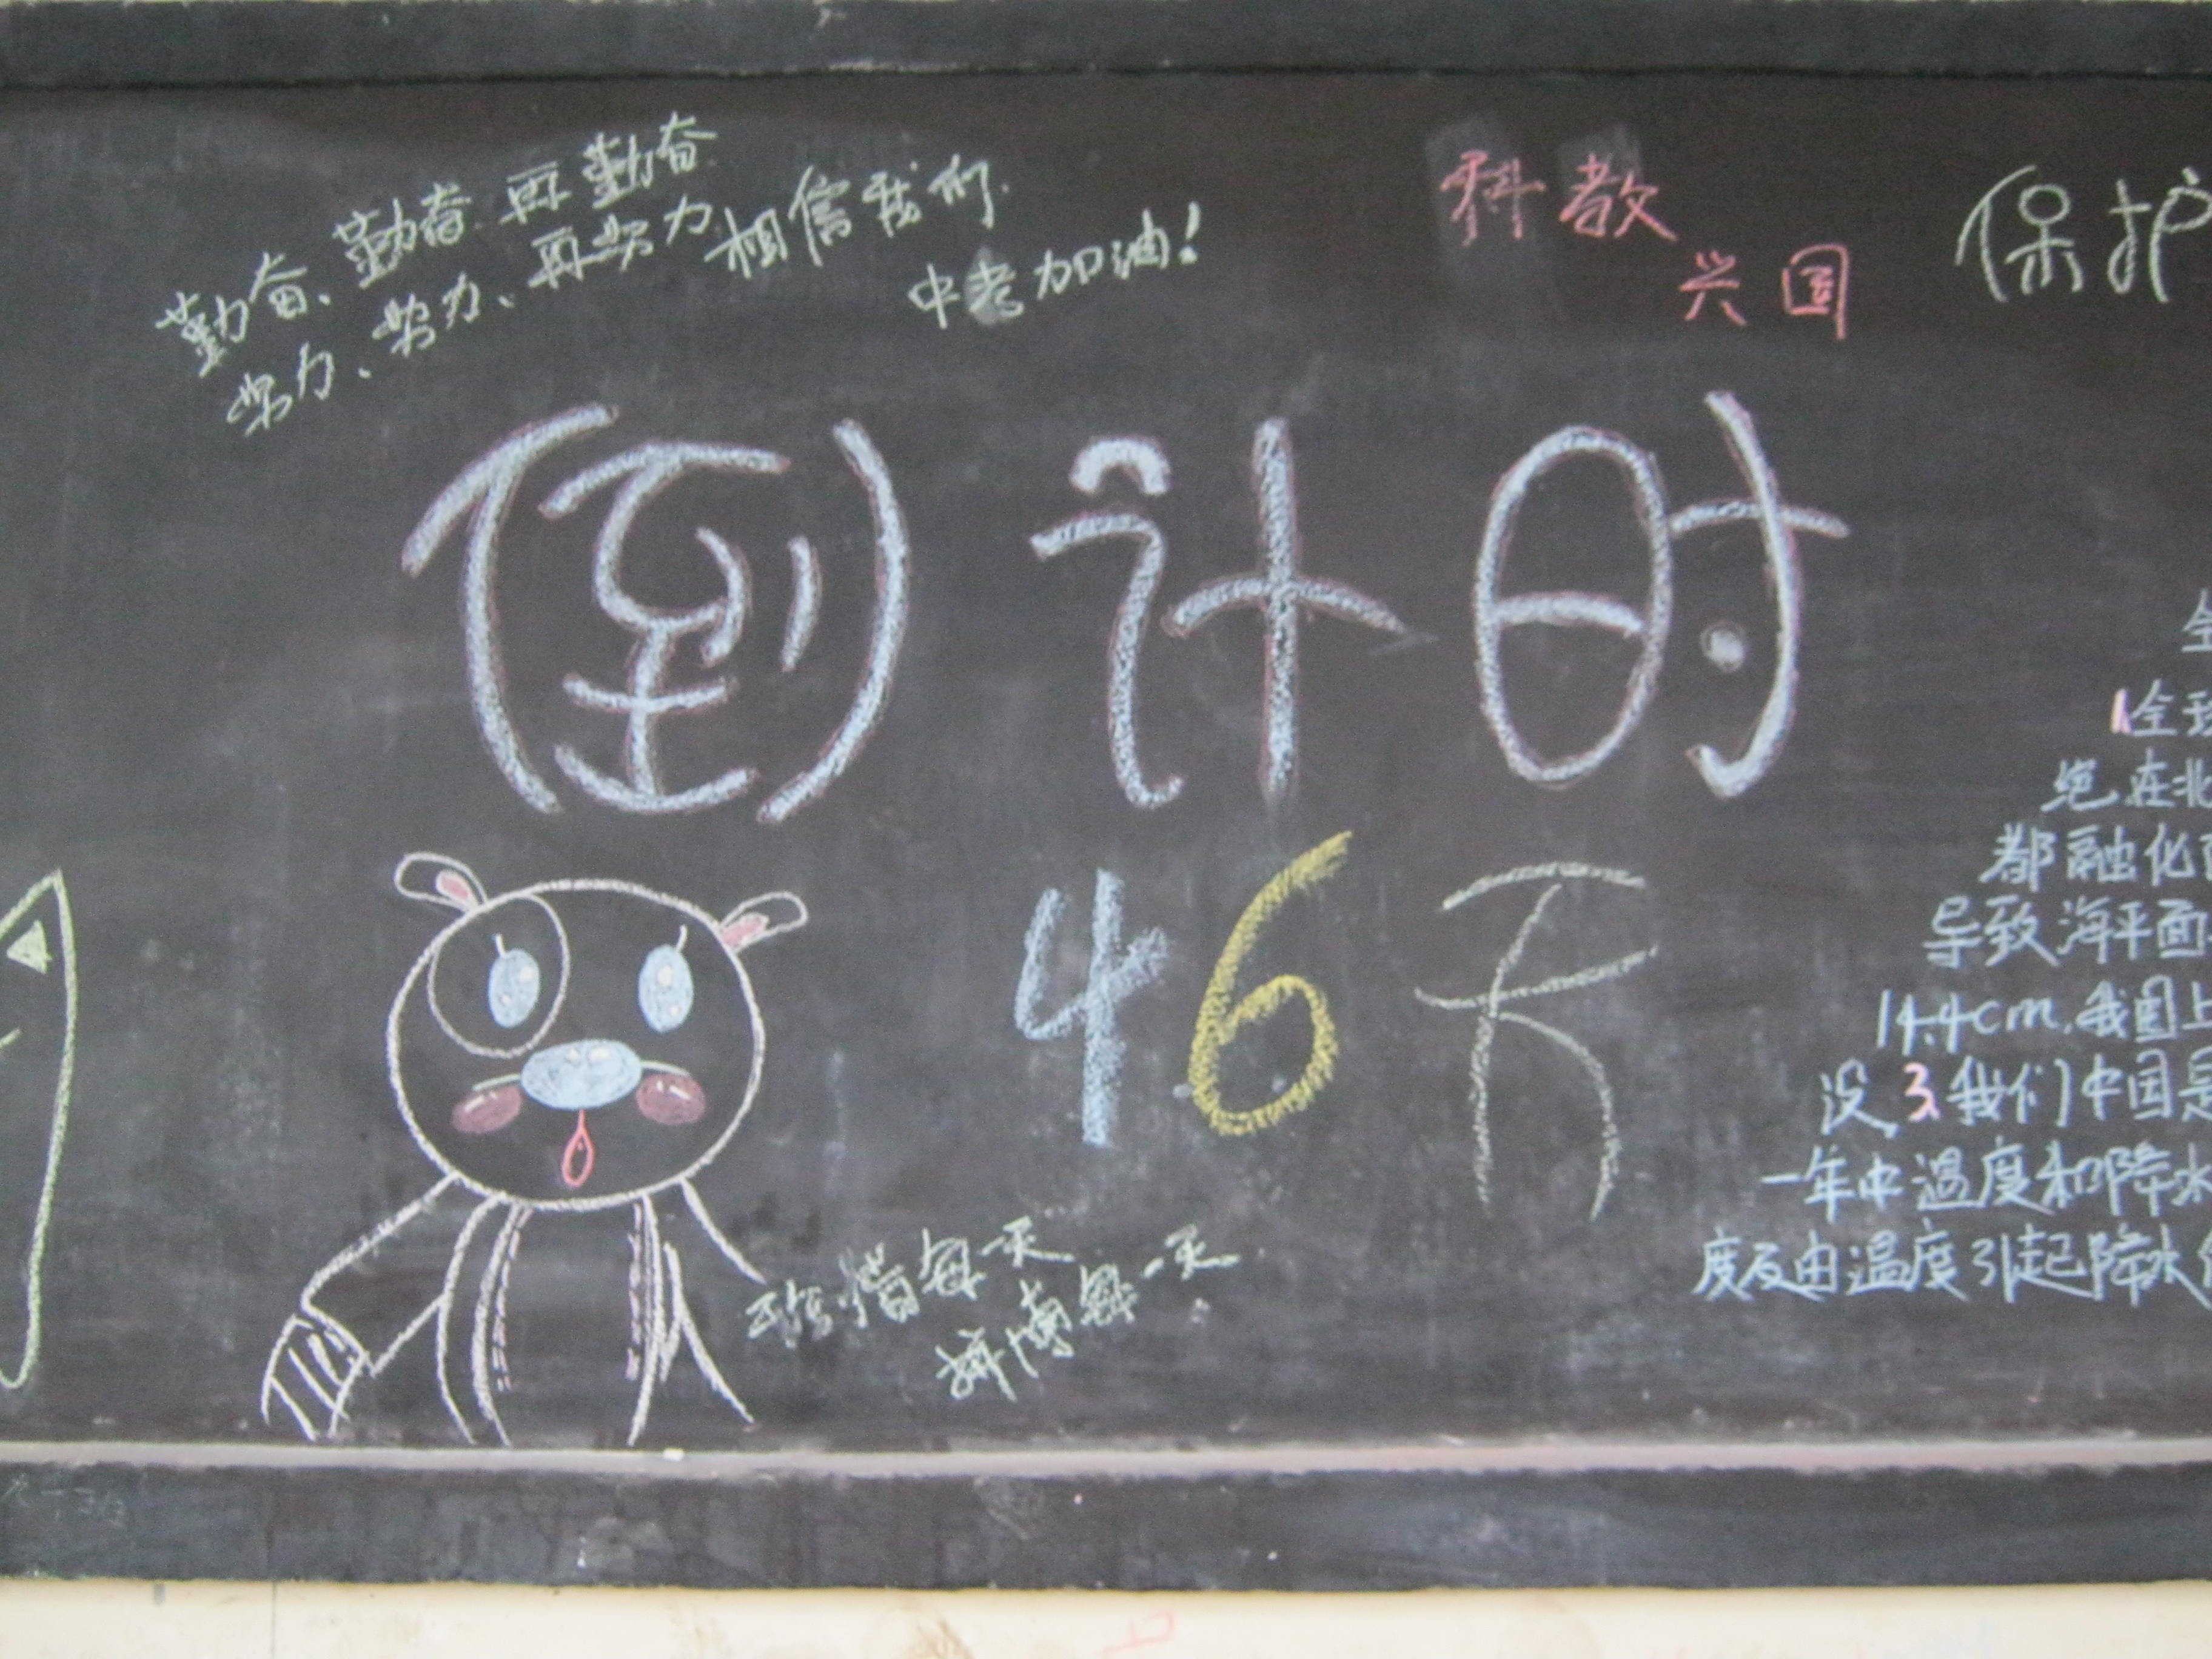 勤奋、勤奋、再勤奋
努力、努力、再努力 相信我们
中考加油!
科教
兴国
保护
倒计时
46天
珍惜每一天
拼搏每一天
全
1.全球
绝 在北
都融化
导致海平面
14.4cm.我国上
没 3.我们中国是
一年中温度和降水
度及由温度引起降水